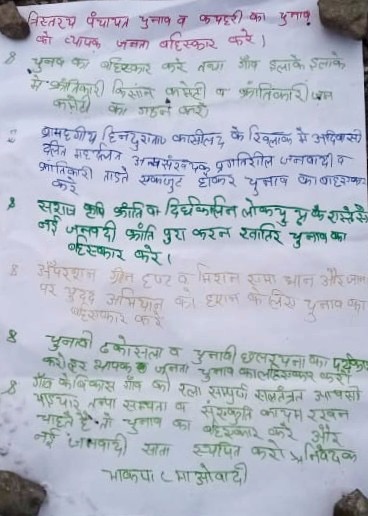 त्रिस्तरीय पंचायत चुनाव व कचहरी का चुनाव
को व्यापक जनता बहिस्कार करे।
8 चुनाव का बहिस्कार करे तथा गाँव इलाके इलाके
में क्रांतिकारी किसान कमेटी व क्रांतिकारी जन
कमेटी का गठन करो
हिन्दुत्वा के खिलाफ में आदिवासी
दलित अल्पसंख्यक प्रगतिशील जनवादी व
क्रांतिकारी ताकते एकजुट होकर चुनाव का बहिस्कार
करे
8 सशस्त्र कृषि क्रांति व दिर्घकालिन लोकयुद्ध के रास्ते से
नई जनवादी क्रांति पुरा करने खातिर चुनाव का
बहिस्कार करे।
8 ऑपरेशन ग्रीन हण्ट व मिशन और
पर अभियान को के लिए चुनाव का
बहिस्कार करे
8 चुनावी ढकोसला व चुनावी छलरचना का
करो हर व्यापक जनता चुनाव का बहिस्कार करो
8 गाँव के विकास गाँव की आपसी
भाईचारे तथा सभ्यता व संस्कृति कायम रखना
चाहते है तो चुनाव का बहिस्कार करे और
नई जनवादी सता स्थापित करो निवेदक
भाकपा (माओवादी